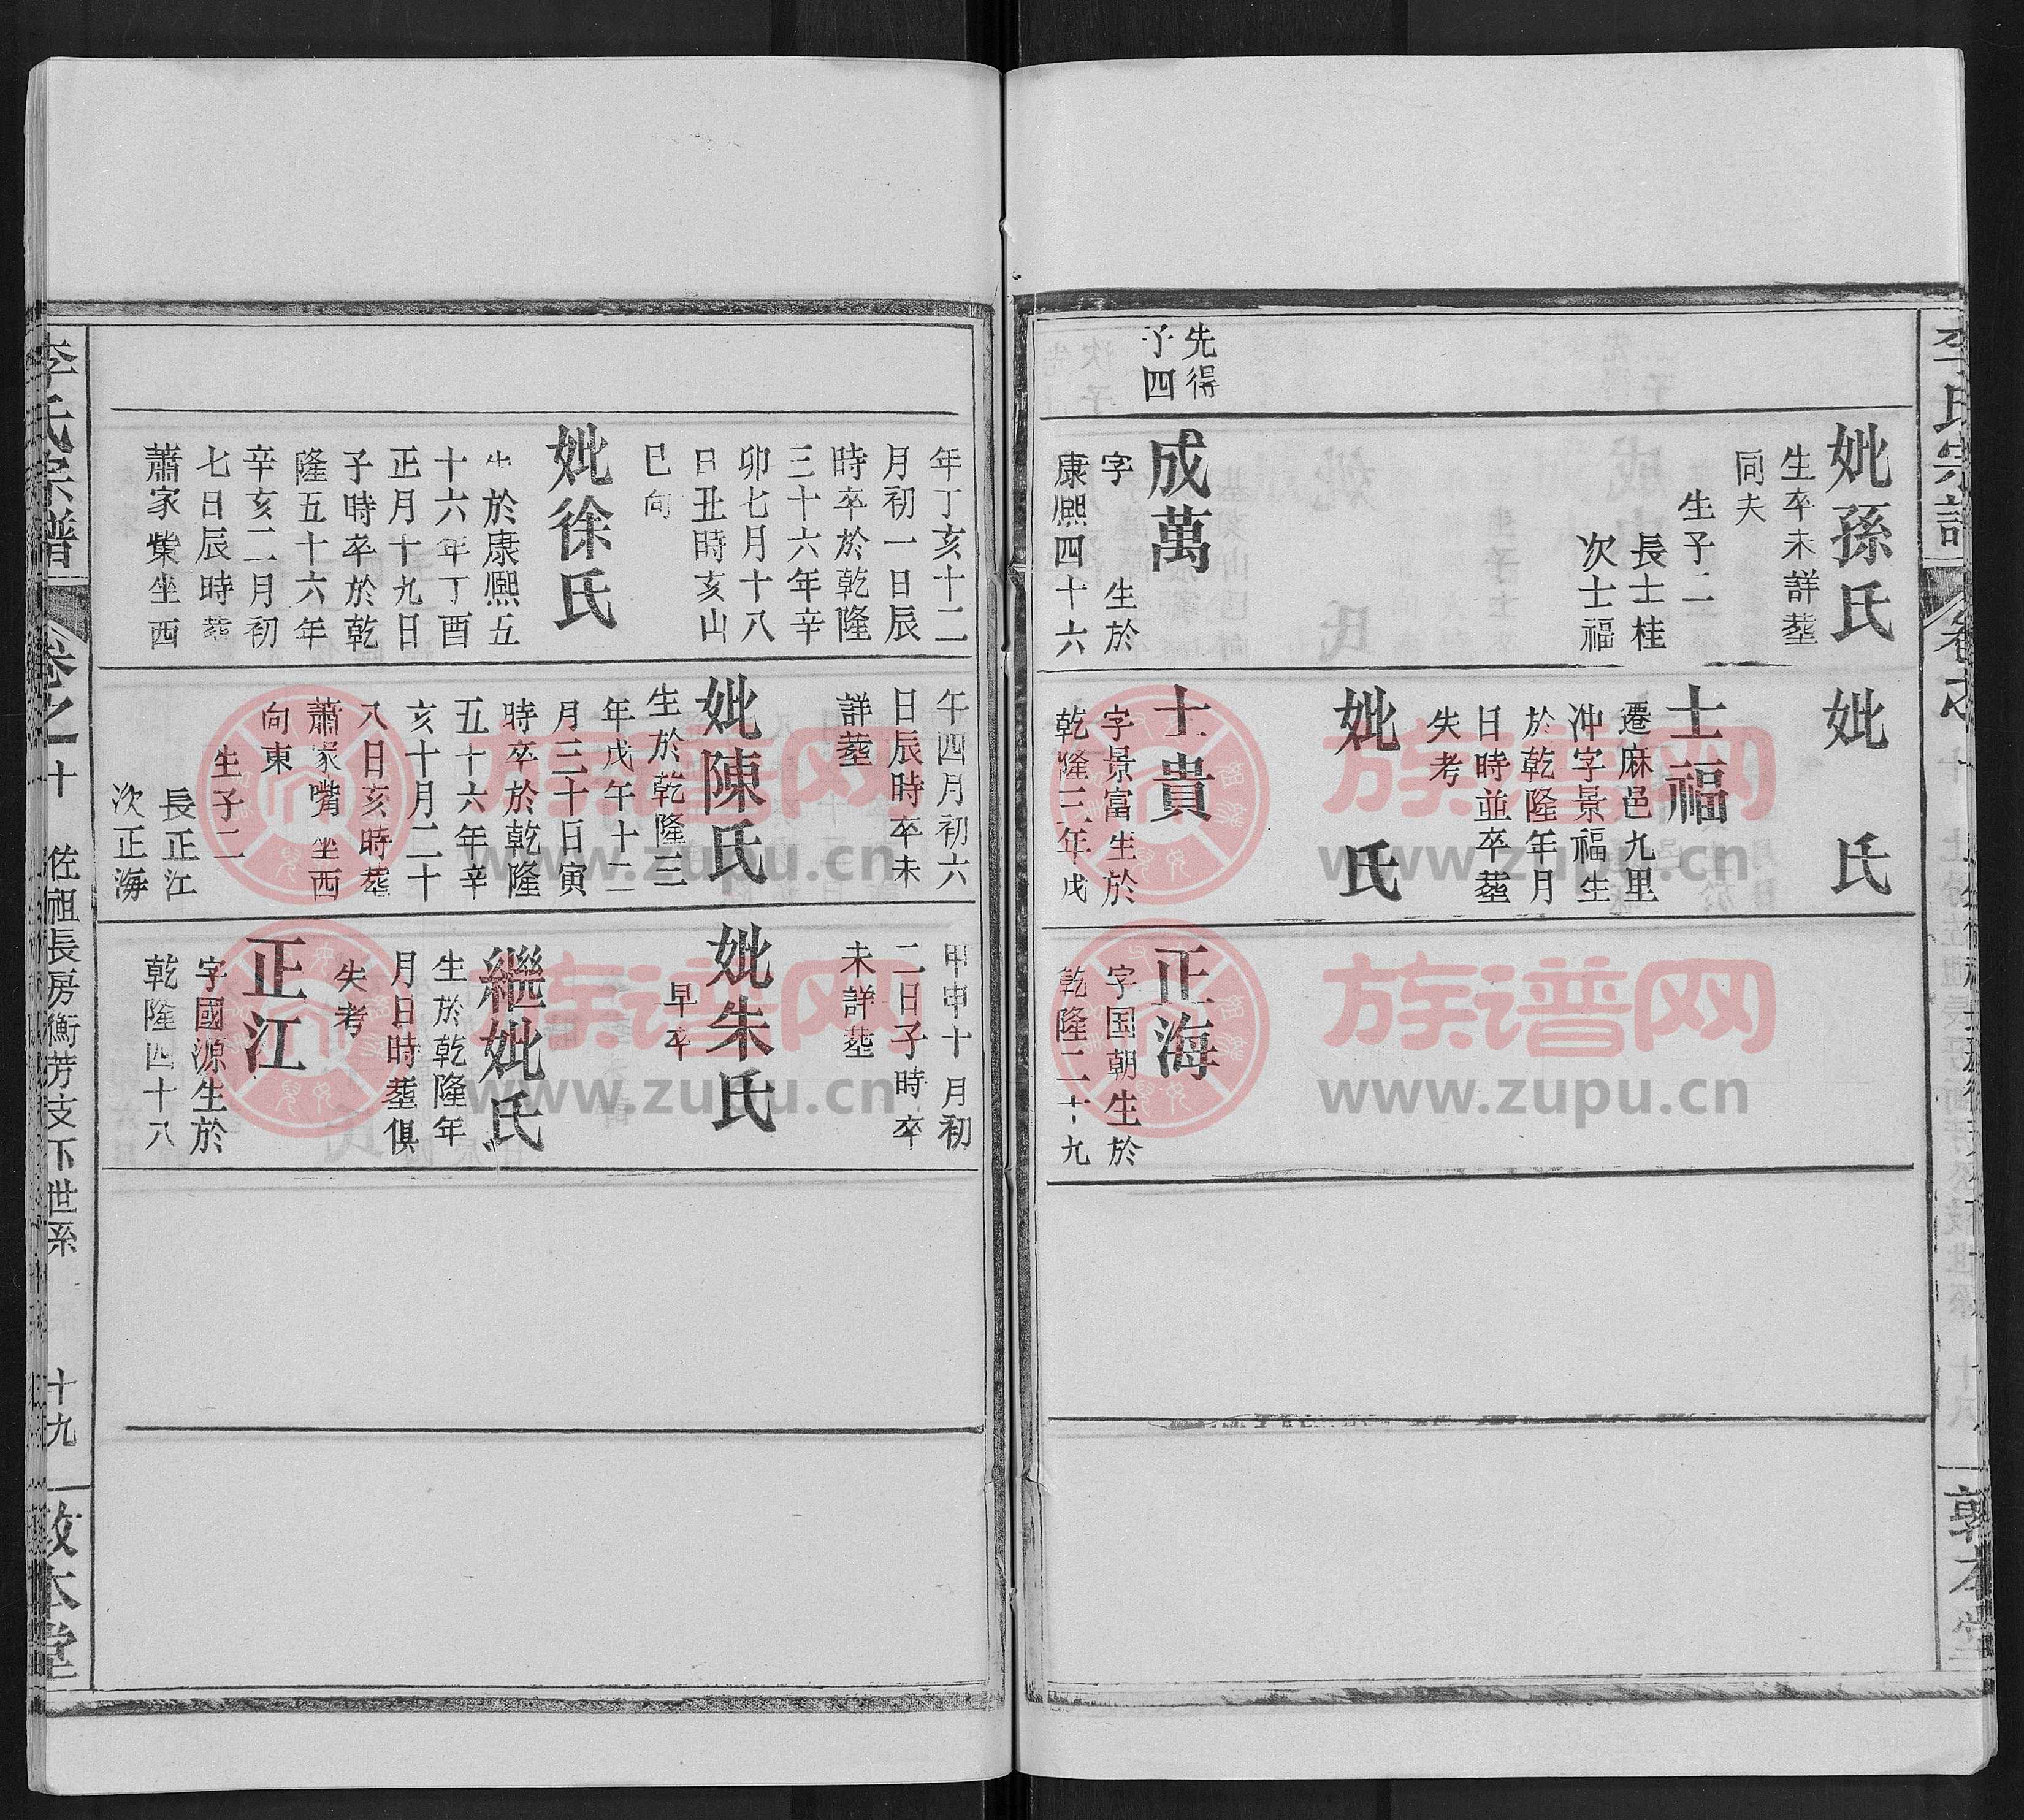 李氏宗譜
妣孫氏
生卒未詳塟
同夫
生子二
長士桂
次士福
先得
子四
成萬
字　生於
康熙四十六
妣　氏
士福
遷麻邑九里
冲字景福生
於乾隆年月
日時並卒塟
失考
妣　氏
士貴
字景富生於
乾隆三年戊
正海
字国朝生於
乾隆二十九
年丁亥十二
月初一日辰
時卒於乾隆
三十六年辛
卯七月十八
日丑時亥山
巳向
妣徐氏
生於康熙五
十六年丁酉
正月十九日
子時卒於乾
隆五十六年
辛亥二月初
七日辰時塟
蕭家㟿坐西
午四月初六
日辰時卒未
詳塟
妣陳氏
生於乾隆三
年戊午十二
月三十日寅
時卒於乾隆
五十六年辛
亥十月二十
八日亥時塟
蕭家嘴坐西
向東
生子二
長正江
次正海
甲申十月初
二日子時卒
未詳塟
妣朱氏
早卒
繼妣　氏
生於乾隆年
月日時塟俱
失考
正江
字國源生於
乾隆四十八
李氏宗譜
卷之十
佐祖長房衡芳支下世系
十九
敦本堂
族谱网
www.zupu.cn
族谱网
www.zupu.cn
族谱网
www.zupu.cn
族谱网
www.zupu.cn